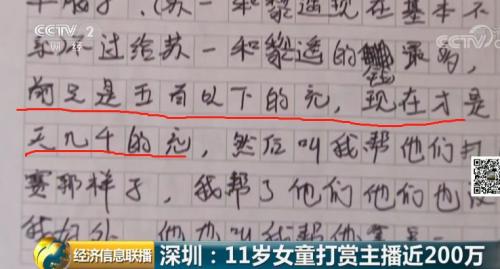 CCTV 2
财经
CCTV
苏一和黎透现在基本不
不过给苏一和黎透的钱最多，
前是五百以下的充，现在才是
天几千的充，然后叫我帮他们打
赛那样子，我帮了他们他们也没
叫我帮
经济信息联播
深圳：11岁女童打赏主播近200万